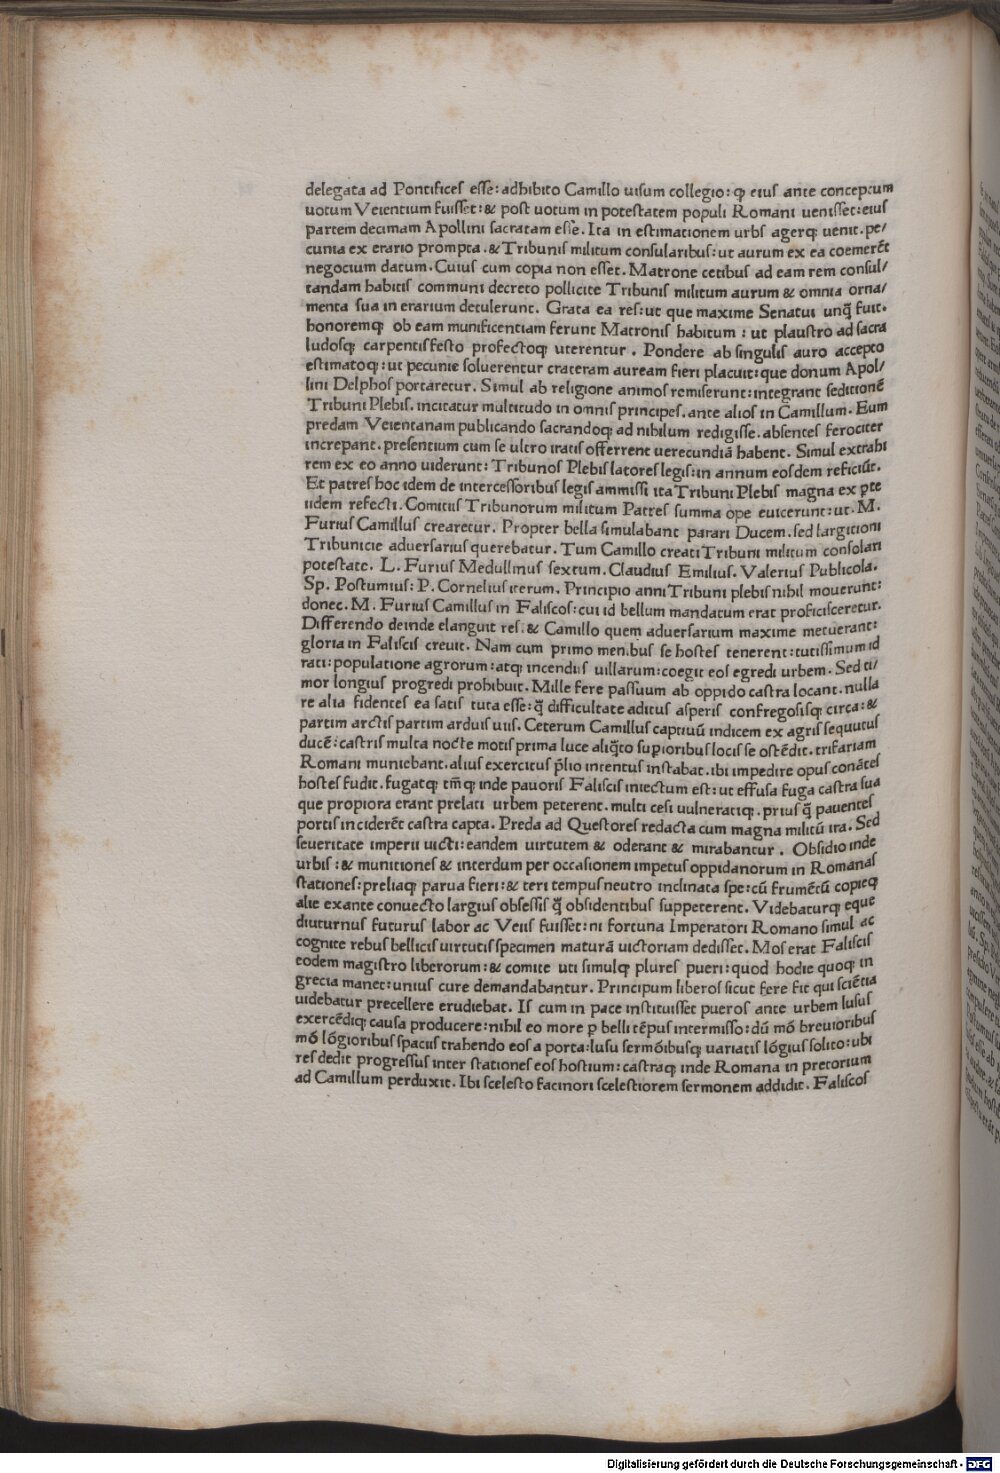 delegata ad Pontificeſ eſſe: adhibito Camillo uiſum collegio: ꝙ eiuſ ante conceptum
uotum Veientium fuiſſet: & poſt uotum in poteſtatem populi Romani ueniſſet: eiuſ
partem decimam Apollini ſacratam eſſe. Ita in eſtimationem urbſ agerqꝫ uenit. pe/
cunia ex erario prompta. & Tribuniſ militum conſularibuſ: ut aurum ex ea coemerēt
negocium datum. Cuiuſ cum copia non eſſet. Matrone cetibuſ ad eam rem conſul/
tandam habitiſ communi decreto pollicite Tribuniſ militum aurum & omnia orna/
menta ſua in erarium detulerunt. Grata ea reſ: ut que maxime Senatui unq̃ fuit.
honoremqꝫ ob eam munificentiam ferunt Matroniſ habitum: ut plauſtro ad ſacra
ludoſqꝫ carpentiſ feſto profectoqꝫ uterentur. Pondere ab ſinguliſ auro accepto
eſtimatoqꝫ: ut pecunie ſoluerentur crateram auream fieri placuit: que donum Apol/
lini Delphoſ portaretur. Simul ab religione animoſ remiſerunt: integrant ſeditionē
Tribuni Plebiſ. incitatur multitudo in omniſ principeſ. ante alioſ in Camillum. Eum
predam Veientanam publicando ſacrandoqꝫ ad nihilum redigiſſe. abſenteſ ferociter
increpant. preſentium cum ſe ultro iratiſ offerrent uerecundiā habent. Simul extrahi
rem ex eo anno uiderunt: Tribunoſ Plebiſ latoreſ legiſ: in annum eoſdem reficiūt.
Et patreſ hoc idem de interceſſoribuſ legiſ ammiſſi ita Tribuni Plebiſ magna ex ꝑte
iidem refecti. Comitiiſ Tribunorum militum Patreſ ſumma ope euicerunt: ut. M.
Furiuſ Camilluſ crearetur. Propter bella ſimulabant parari Ducem. ſed largitioni
Tribunicie aduerſariuſ querebatur. Tum Camillo creati Tribuni militum conſolari
poteſtate. L. Furiuſ Medullinuſ ſextum. Claudiuſ Emiliuſ. Valeriuſ Publicola.
Sp. Poſtumiuſ: P. Corneliuſ iterum. Principio anni Tribuni plebiſ nihil mouerunt:
donec. M. Furiuſ Camilluſ in Faliſcoſ: cui id bellum mandatum erat proficiſceretur.
Differendo deinde elanguit reſ. & Camillo quem aduerſarium maxime metuerant:
gloria in Faliſciſ creuit. Nam cum primo menibuſ ſe hoſteſ tenerent: tutiſſimum id
rati: populatione agrorum: atqꝫ incendiiſ uillarum: coegit eoſ egredi urbem. Sed ti/
mor longiuſ progredi prohibuit. Mille fere paſſuum ab oppido caſtra locant. nulla
re alia fidenteſ ea ſatiſ tuta eſſe: q̃ difficultate adituſ aſperiſ confregoſiſqꝫ circa: &
partim arctiſ partim arduiſ uiiſ. Ceterum Camilluſ captiuū indicem ex agriſ ſequutuſ
ducē: caſtriſ multa nocte motiſ prima luce aliq̃to ſuꝑioribuſ lociſ ſe oſtēdit. trifariam
Romani muniebant. aliuſ exercituſ p̄lio intentuſ inſtabat. ibi impedire opuſ conāteſ
hoſteſ fudit. fugatqꝫ tm̄qꝫ inde pauoriſ Faliſciſ iniectum eſt: ut effuſa fuga caſtra ſua
que propiora erant prelati urbem peterent. multi ceſi uulneratiqꝫ. priuſ q̃ pauenteſ
portiſ inciderēt caſtra capta. Preda ad Queſtoreſ redacta cum magna militū ira. Sed
ſeueritate imperii uicti: eandem uirtutem & oderant & mirabantur. Obſidio inde
urbiſ: & munitioneſ & interdum per occaſionem impetuſ oppidanorum in Romanaſ
ſtationeſ: preliaqꝫ parua fieri: & teri tempuſ neutro inclinata ſpe: cū frumētū copieqꝫ
alie ex ante conuecto largiuſ obſeſſiſ q̃ obſidentibuſ ſuppeterent. Videbaturqꝫ eque
diuturnuſ futuruſ labor ac Veiiſ fuiſſet: ni fortuna Imperatori Romano ſimul ac
cognite rebuſ belliciſ uirtutiſ ſpecimen maturā uictoriam dediſſet. Moſ erat Faliſciſ
eodem magiſtro liberorum: & comite uti ſimulqꝫ plureſ pueri: quod hodie quoqꝫ in
grecia manet: uniuſ cure demandabantur. Principum liberoſ ſicut fere fit qui ſciētia
uidebatur precellere erudiebat. Iſ cum in pace inſtituiſſet pueroſ ante urbem luſuſ
exercēdiqꝫ cauſa producere: nihil eo more p belli tēpuſ intermiſſo: dū mō breuioribuſ
mō lōgioribuſ ſpaciiſ trahendo eoſ a porta: luſu ſermōibuſqꝫ uariatiſ lōgiuſ ſolito: ubi
reſ dedit progreſſuſ inter ſtationeſ eoſ hoſtium: caſtraqꝫ inde Romana in pretorium
ad Camillum perduxit. Ibi ſceleſto facinori ſceleſtiorem ſermonem addidit. Faliſcoſ
Digitalisierung gefördert durch die Deutsche Forschungsgemeinschaft - DFG